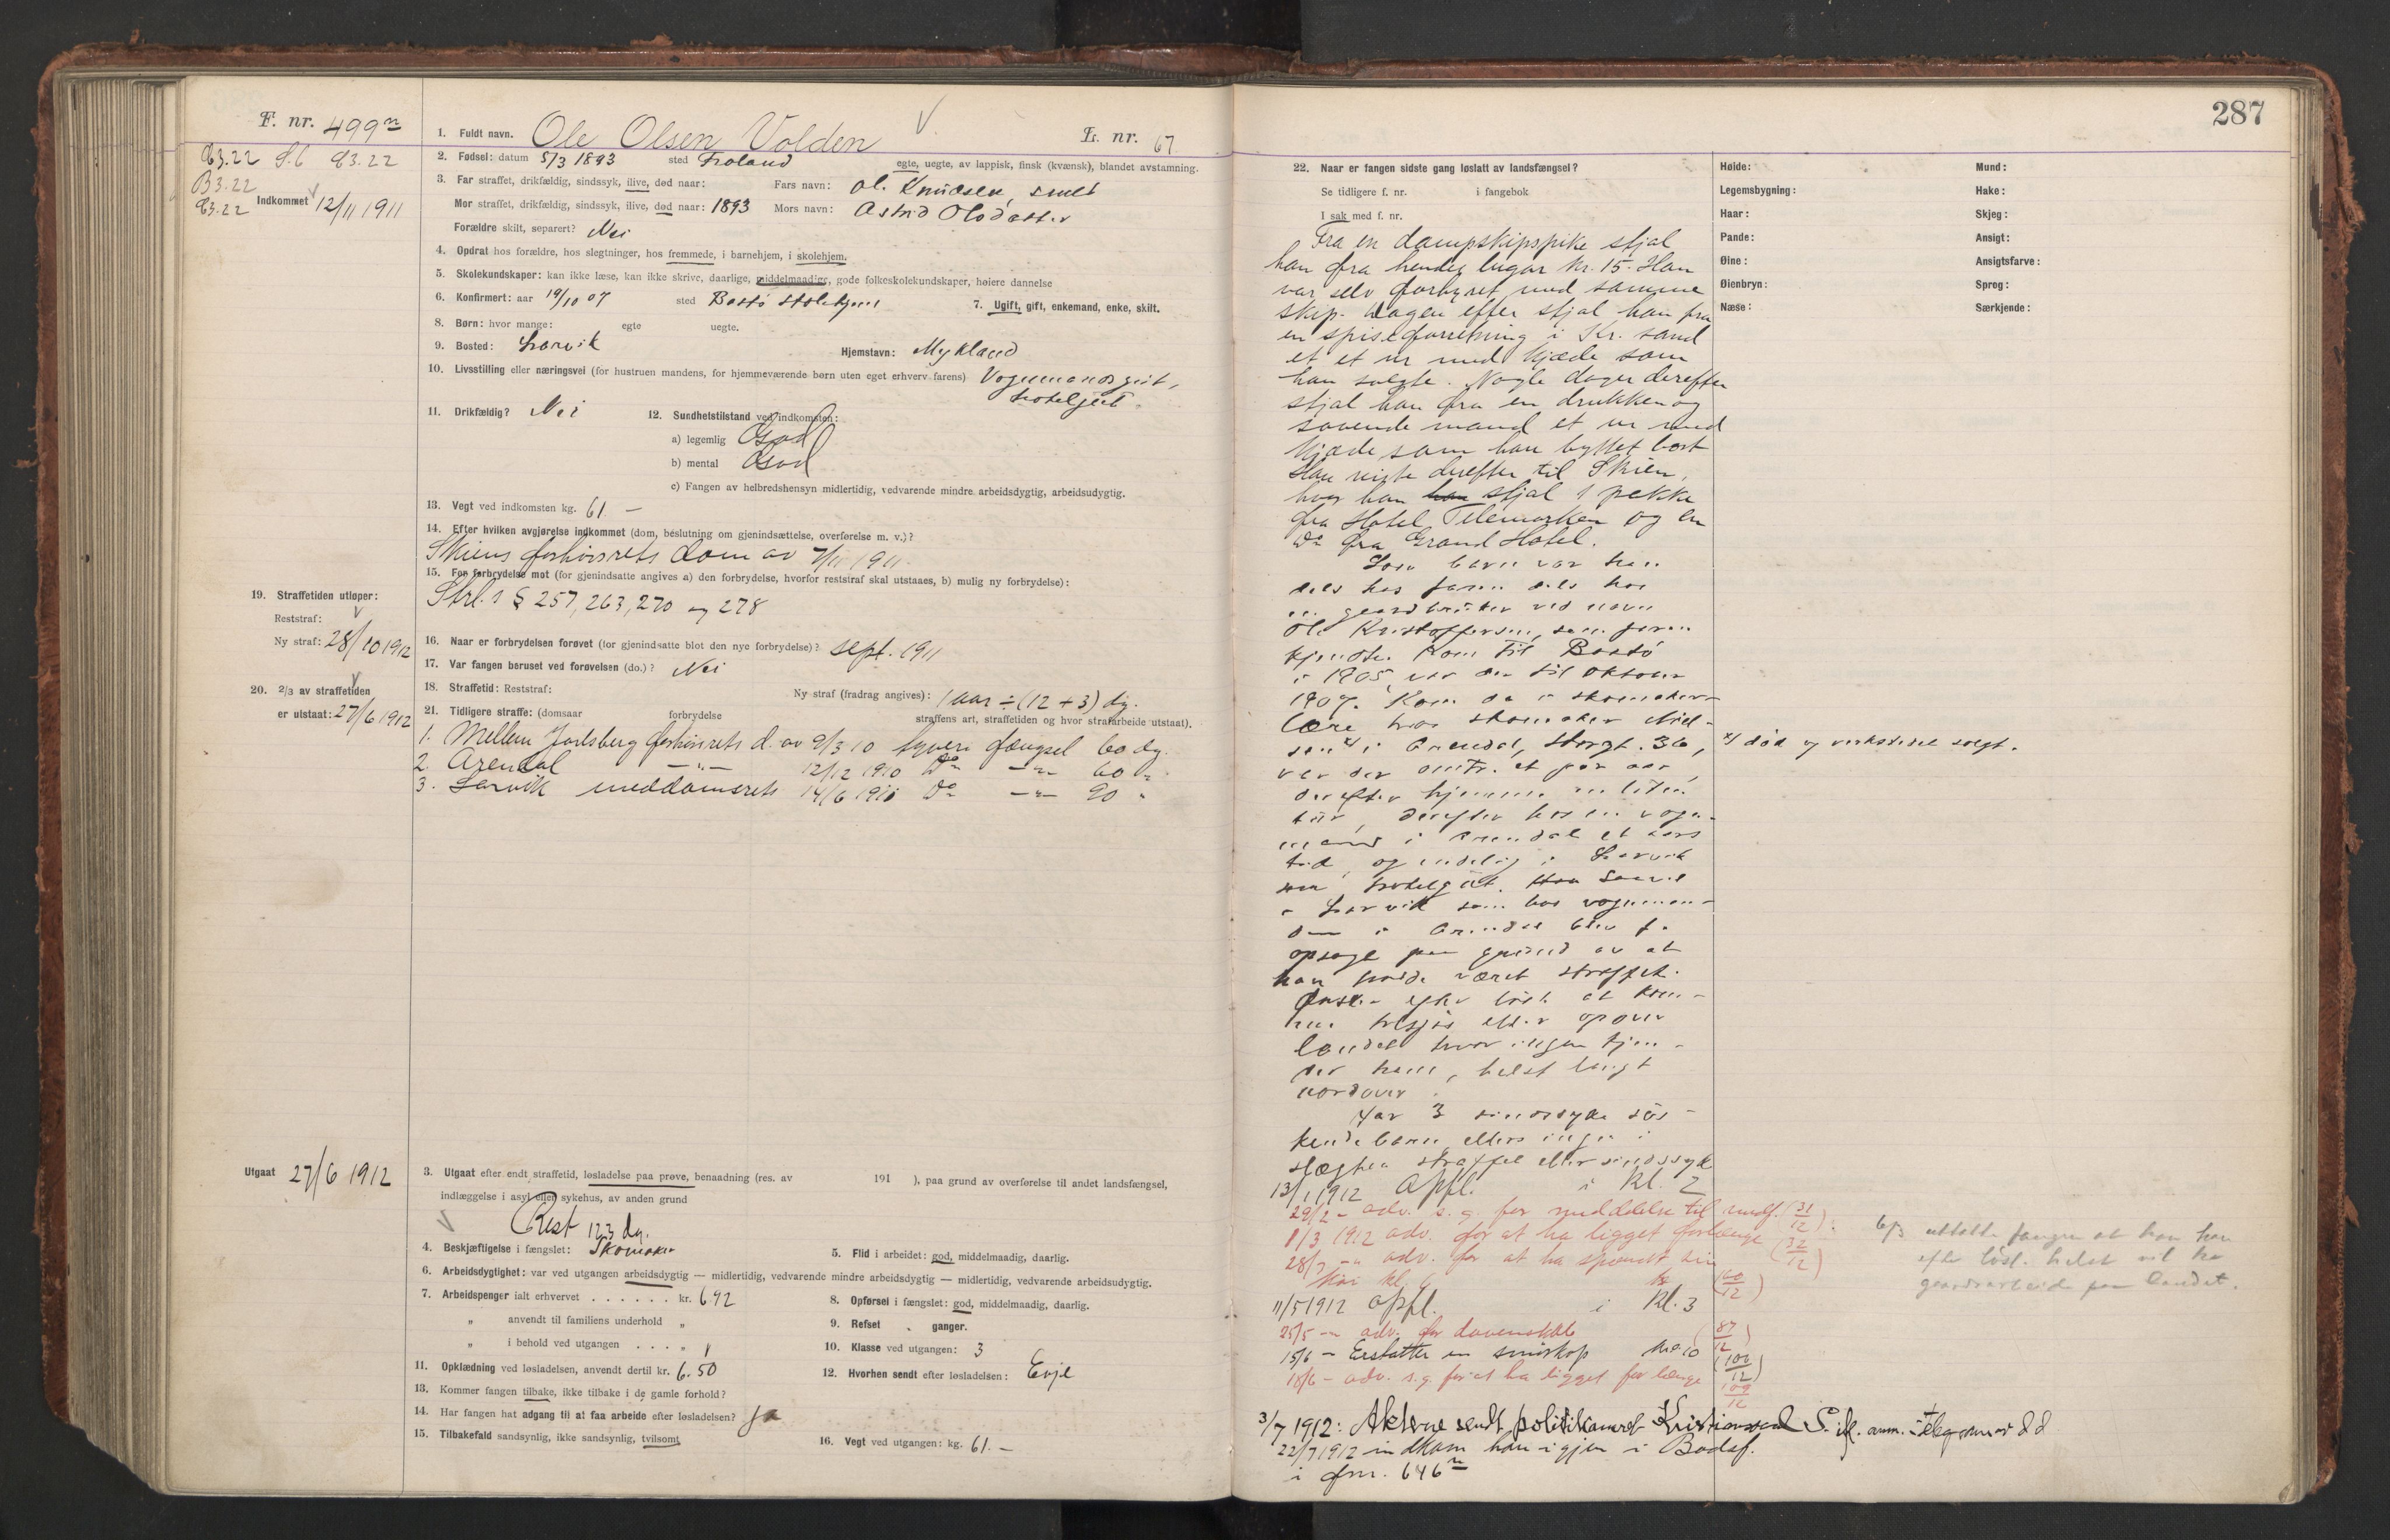 287
F. nr. 499n
1. Fuldt navn. Ole Olsen Volden
L. nr. 67
2. Fødsel: datum 5/3 1893 sted Froland egte, uegte, av lappisk, finsk (kvænsk), blandet avstamning.
Indkommet 12/11 1911
3. Far straffet, drikfældig, sindssyk, ilive, død naar: Fars navn: Ole Knudsen, smed
Mor straffet, drikfældig, sindssyk, ilive, død naar: 1893 Mors navn: Astrid Olsdatter
Forældre skilt, separert? Nei
4. Opdrat hos forældre, hos slegtninger, hos fremmede, i barnehjem, i skolehjem.
5. Skolekundskaper: kan ikke læse, kan ikke skrive, daarlige, middelmaadige, gode folkeskolekundskaper, høiere dannelse
6. Konfirmert: aar 19/10 07 sted Bastø skolehjem 7. Ugift, gift, enkemand, enke, skilt.
8. Børn: hvor mange: egte uegte.
9. Bosted: Larvik Hjemstavn: Mykland
10. Livsstilling eller næringsvei (for hustruen mandens, for hjemmeværende børn uten eget erhverv farens) Vognmandsgut,
hotelgut.
11. Drikfældig? Nei 12. Sundhetstilstand ved indkomsten:
a) legemlig God
b) mental God
c) Fangen av helbredshensyn midlertidig, vedvarende mindre arbeidsdygtig, arbeidsudygtig.
13. Vegt ved indkomsten kg. 61 —
14. Efter hvilken avgjørelse indkommet (dom, beslutning om gjenindsættelse, overførelse m. v.)?
Skiens forhørsrets dom av 7/11 1911
15. For forbrydelse mot (for gjenindsatte angives a) den forbrydelse, hvorfor reststraf skal utstaaes, b) mulig ny forbrydelse):
Strl.s § 257, 263, 270 og 278
19. Straffetiden utløper:
Reststraf:
Ny straf: 28/10 1912
16. Naar er forbrydelsen forøvet (for gjenindsatte blot den nye forbrydelse)? sept. 1911
17. Var fangen beruset ved forøvelsen (do.)? Nei
20. 2/3 av straffetiden
er utstaat: 27/6 1912
18. Straffetid: Reststraf: Ny straf (fradrag angives): 1 aar ÷ (12 + 3) dg.
21. Tidligere straffe: (domsaar forbrydelse straffens art, straffetiden og hvor strafarbeide utstaat).
1. Mellem Jarlsberg forhørsrets d. av 9/3 10 tyveri fængsel 60 dg.
2. Arendal —"— 12/12 1910 Do —"— 60 "
3. Larvik meddomsrets 14/6 1911 Do —"— 90 "
Utgaat 27/6 1912
3. Utgaat efter endt straffetid, løsladelse paa prøve, benaadning (res. av 191 ), paa grund av overførelse til andet landsfængsel,
indlæggelse i asyl eller sykehus, av anden grund
Rest 123 dg.
4. Beskjæftigelse i fængslet: Skomaker 5. Flid i arbeidet: god, middelmaadig, daarlig.
6. Arbeidsdygtighet: var ved utgangen arbeidsdygtig — midlertidig, vedvarende mindre arbeidsdygtig — midlertidig, vedvarende arbeidsudygtig.
7. Arbeidspenger ialt erhvervet . . . . . . kr. 6.92 8. Opførsel i fængslet: god, middelmaadig, daarlig.
" anvendt til familiens underhold " 9. Refset " ganger.
" i behold ved utgangen . . . " 10. Klasse ved utgangen: 3
11. Opklædning ved løsladelsen, anvendt dertil kr. 6.50 12. Hvorhen sendt efter løsladelsen: Evje
13. Kommer fangen tilbake, ikke tilbake i de gamle forhold?
14. Har fangen hat adgang til at faa arbeide efter løsladelsen? Ja
15. Tilbakefald sandsynlig, ikke sandsynlig, tvilsomt 16. Vegt ved utgangen: kg. 61. —
22. Naar er fangen sidste gang løslatt av landsfængsel?
Se tidligere f. nr. i fangebok
I sak med f. nr.
Høide: Mund:
Legemsbygning: Hake:
Haar: Skjeg:
Pande: Ansigt:
Øine: Ansigtsfarve:
Øienbryn: Sprog:
Næse: Særkjende:
Fra en dampskipspike stjal
han fra hendes lugar kr. 15. Han
var selv forhyret med samme
skip. Dagen efter stjal han fra
en spiseforretning i Kr. sand
et et ur med kjæde som
han solgte. Nogle dager derefter
stjal han fra en drukken og
sovende mand et ur med
kjæde som han byttet bort
Han reiste derefter til Skien,
hvor han han stjal 1 frakke
fra Hotel Telemarken og en
Do fra Grand Hotel.
Som barn var han
dels hos faren dels hos
en gaardbruker ved navn
Ole Kristoffersen, som faren
kjendte. Kom til Bastø
i 1905 var der til oktober
1907. Kom da i skomaker-
lære hos skomaker Niel-
sen x) i Arendal, Storgt. 36,
x) død og verkstedet solgt.
var der omtr. et par aar,
derefter hjemme en liten
tur, derefter hos en vogn-
mand i Arendal et aars
tid, og endelig i Larvik
som hotelgut. Han saavel
i Larvik som hos vognman-
den i Arendal blev
opsagt paa grund av at
han hadde været straffet.
Ønsker efter løsl. at kom-
me tilsjøs eller opover
landet hvor ingen kjen-
der ham, helst langt
nordover.
Har 3 sindssyke søs-
kendebarn, ellers ingen i
slægten straffet eller sindssyk
13/1 1912 Opfl. i Kl. 2
29/2 – adv. s. g. for meddelelse til medf. (31/12)
8/3 1912 adv. for at ha ligget forlænge (32/12)
28/3 –" adv. for at ha (60/12)
11/5 1912 opfl. i Kl. 3
25/5 –" adv. for dovenskab (87/12)
15/6 – Erstatter en kr. 0.10 (106/12)
18/6 – adv. s.g. for at ha ligget for længe 109/12
6/3 uttalte fangen at han
efter løsl. helst vil ha
gaardsarbeide paa landet.
3/7 1912: Aktene sendt politikamret Kristiansand S. ifl. anm. i telegram av d.d.
22/7 1912 indkom han igjen i Bodsf.
i fnr. 646n